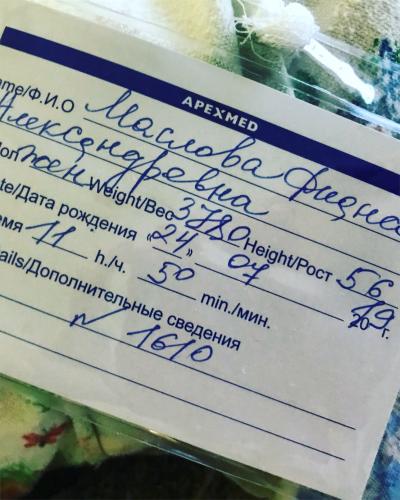 APEXMED
ame/Ф.И.О Маслова Фиона
Александровна
Пол жен Weight/Вес 3780 Height/Рост 56
ate/Дата рождения «24» 07 2019 г.
емя 11 h./ч. 50 min./мин.
ails/Дополнительные сведения
N 1610